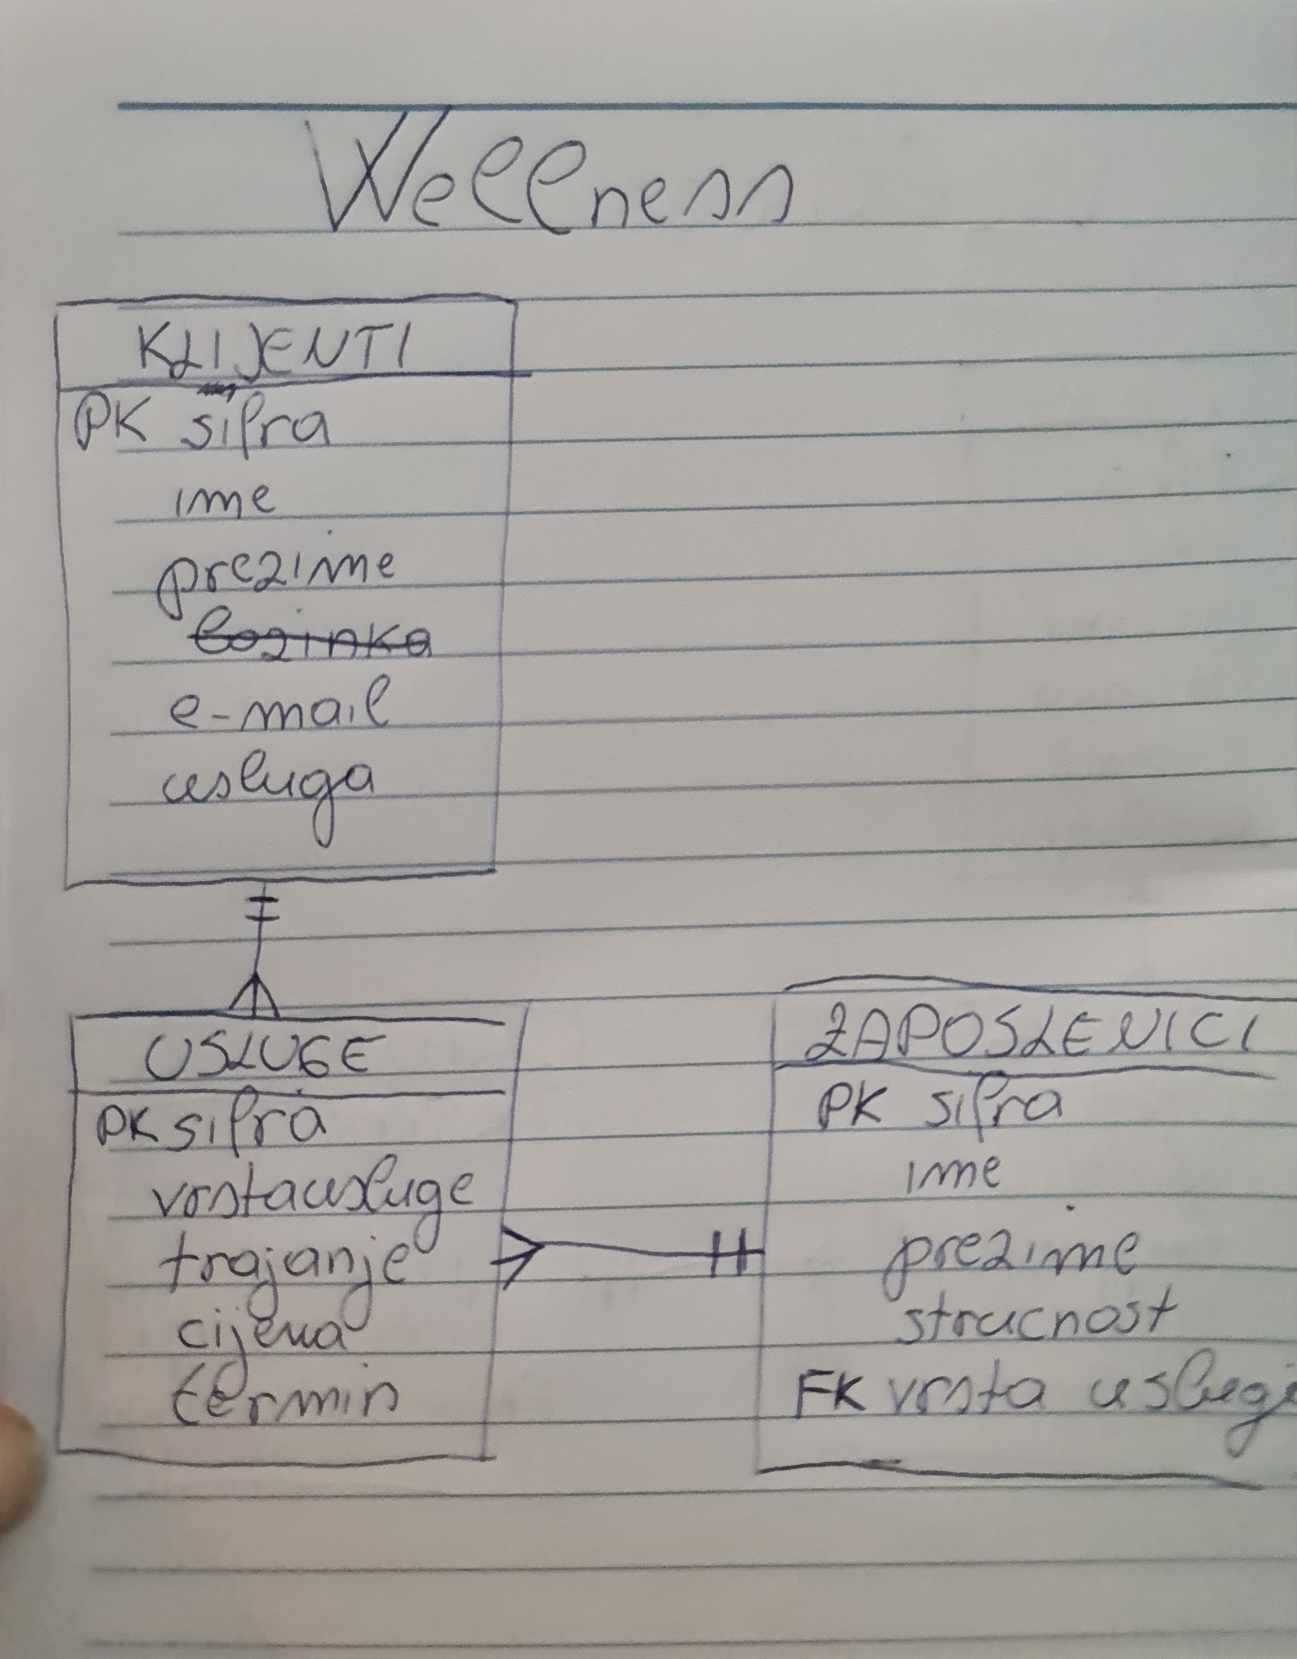 Wellness
KLIJENTI
PK sifra
ime
prezime
lozinka
e-mail
usluga
USLUGE
PK sifra
vrstausluge
trajanje
cijena
termin
ZAPOSLENICI
PK sifra
ime
prezime
strucnost
FK vrsta uslug